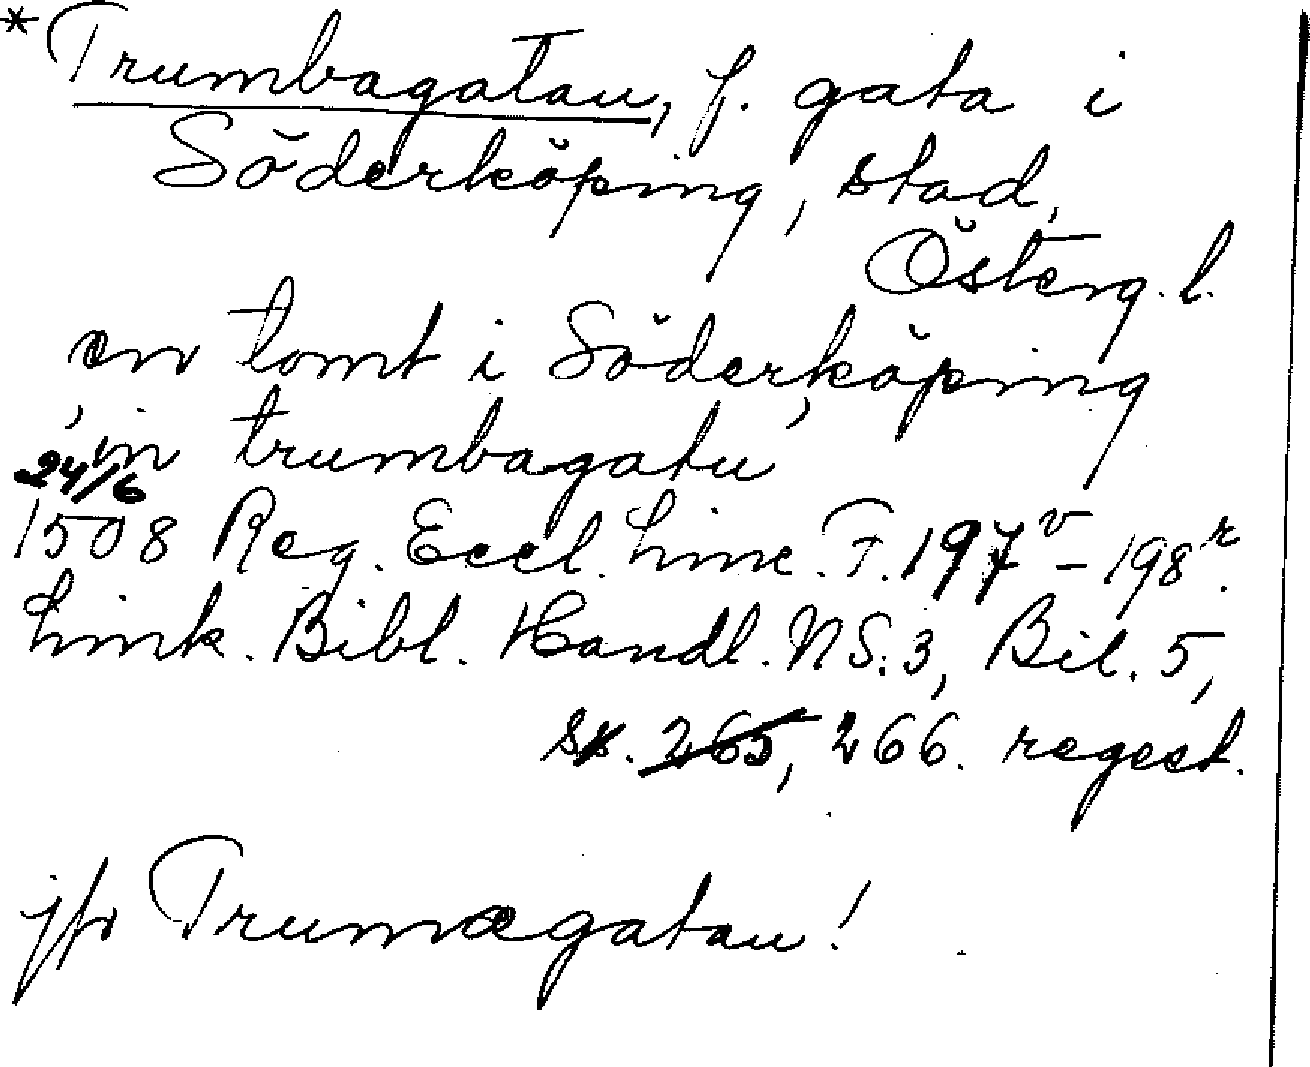 *Trumbagatan, f. gata i
Söderköping, stad,
Österg. l.
en tomt i Söderköping
, in trumbagatu
24/6
1508 Reg. Eccl. Linc. F. 197v - 198r.
Link. Bibl. Handl. NS. 3, Bil. 5,
s. 265, 266. regest.
jfr Trumægatan!